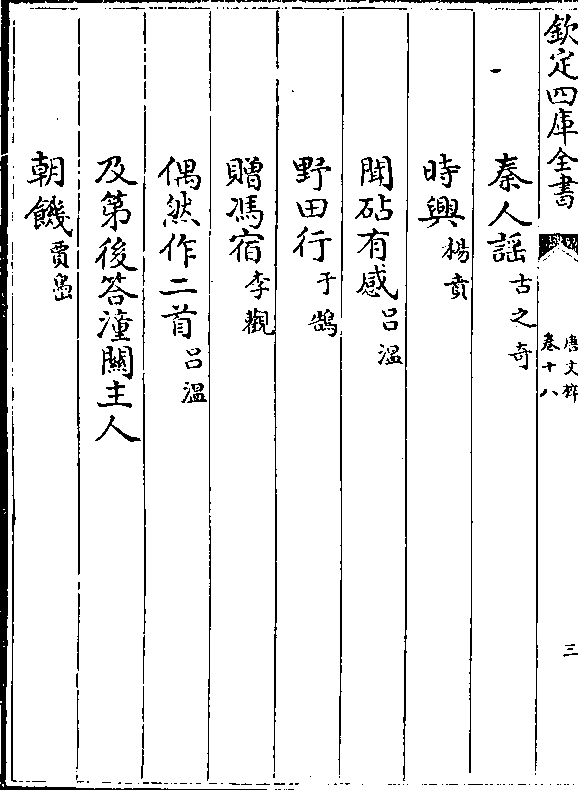 欽定四庫全書
唐文粹
卷十八
三
秦人謡古之奇
時興楊賁
聞砧有感吕溫
野田行于鵠
贈馮宿李觀
偶然作二首吕溫
及第後答潼關主人
朝饑賈島